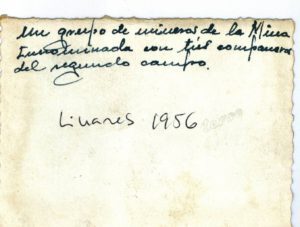 Un grupo de mineros de la Mina
Innominada con tres companeros
del segundo campo.
Linares 1956